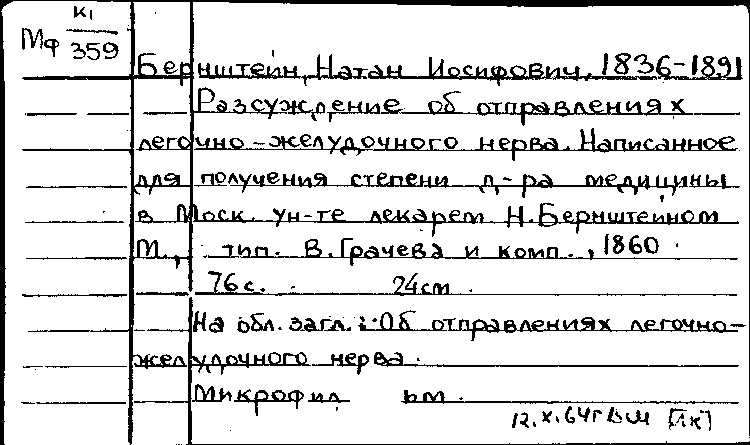 Мф К1/359
Бернштейн, Натан Иосифович, 1836-1891
Разсуждение об отправлениях
легочно-желудочного нерва. Написанное
для получения степени д-ра медицины
в Моск. ун-те лекарем Н. Бернштейном
М., тип. В. Грачева и комп., 1860.
76 с. 24 см.
На обл. загл.: Об отправлениях легочно-
желудочного нерва.
Микрофил ьм.
12.X.64г [лк]